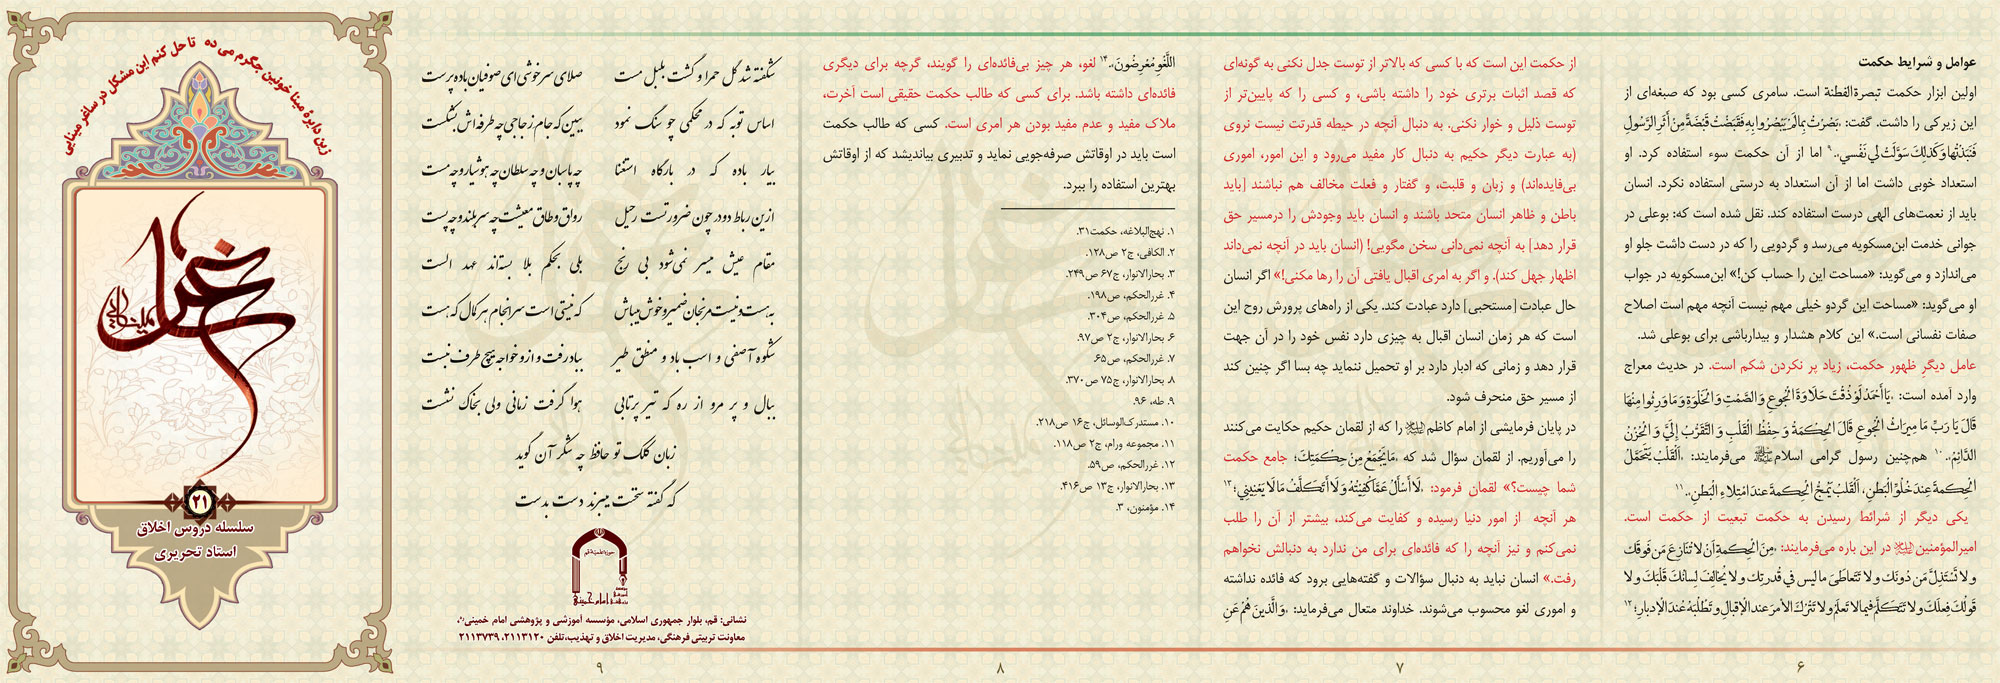 عوامل و شرایط حکمت
اولین ابزار حکمت تبصرة‌الفطنة است. سامری کسی بود که صبغه‌ای از
این زیرکی را داشت. گفت: «بَصُرْتُ بِمَا لَمْ يَبْصُرُوا بِهِ فَقَبَضْتُ قَبْضَةً مِنْ أَثَرِ الرَّسُولِ
فَنَبَذْتُهَا وَكَذَلِكَ سَوَّلَتْ لِي نَفْسِي»،۹ اما از آن حکمت سوء استفاده کرد. او
استعداد خوبی داشت اما از آن استعداد به درستی استفاده نکرد. انسان
باید از نعمت‌های الهی درست استفاده کند. نقل شده است که: بوعلی در
جوانی خدمت ابن‌مسکویه می‌رسد و گردویی را که در دست داشت جلو او
می‌اندازد و می‌گوید: «مساحت این را حساب کن!» ابن‌مسکویه در جواب
او می‌گوید: «مساحت این گردو خیلی مهم نیست آنچه مهم است اصلاح
صفات نفسانی است.» این کلام هشدار و بیدارباشی برای بوعلی شد.
عامل دیگر ظهور حکمت، زیاد پر نکردن شکم است. در حدیث معراج
وارد آمده است: «يَا أَحْمَدُ لَوْ ذُقْتَ حَلَاوَةَ الْجُوعِ وَ الصَّمْتِ وَ الْخَلْوَةِ وَ مَا وَرِثُوا مِنْهَا
قَالَ يَا رَبِّ مَا مِيرَاثُ الْجُوعِ قَالَ الْحِكْمَةُ وَ حِفْظُ الْقَلْبِ وَ التَّقَرُّبُ إِلَيَّ وَ الْحُزْنُ
الدَّائِمُ».۱۰ هم‌چنین رسول گرامی اسلامﷺ می‌فرمایند: «اَلْقَلْبُ يَتَحَمَّلُ
الْحِكْمَةَ عِنْدَ خُلُوِّ الْبَطْنِ، اَلْقَلْبُ يَمُجُّ الْحِكْمَةَ عِنْدَ امْتِلَاءِ الْبَطْنِ».۱۱
یکی دیگر از شرائط رسیدن به حکمت تبعیت از حکمت است.
امیرالمؤمنین در این باره می‌فرمایند: «مِنَ الْحِكْمَةِ أَنْ لَا تُنَازِعَ مَنْ فَوْقَكَ
وَ لَا تَسْتَذِلَّ مَنْ دُونَكَ وَ لَا تَتَعَاطَى مَا لَيْسَ فِي قُدْرَتِكَ وَ لَا يُخَالِفَ لِسَانُكَ قَلْبَكَ وَ لَا
قَوْلُكَ فِعْلَكَ وَ لَا تَتَكَلَّمَ فِيمَا لَا تَعْلَمُ وَ لَا تَتْرُكَ الْأَمْرَ عِنْدَ الْإِقْبَالِ وَ تَطْلُبَهُ عِنْدَ الْإِدْبَارِ؛۱۲
۶
از حکمت این است که با کسی که بالاتر از توست جدل نکنی به گونه‌ای
که قصد اثبات برتری خود را داشته باشی، و کسی را که پایین‌تر از
توست ذلیل و خوار نکنی. به دنبال آنچه در حیطه قدرتت نیست نروی
(به عبارت دیگر حکیم به دنبال کار مفید می‌رود و این امور، اموری
بی‌فایده‌اند) و زبان و قلبت، و گفتار و فعلت مخالف هم نباشند [باید
باطن و ظاهر انسان متحد باشند و انسان باید وجودش را درمسیر حق
قرار دهد] به آنچه نمی‌دانی سخن مگویی! (انسان باید در آنچه نمی‌داند
اظهار جهل کند). و اگر به امری اقبال یافتی آن را رها مکنی!» اگر انسان
حال عبادت [مستحبی] دارد عبادت کند. یکی از راه‌های پرورش روح این
است که هر زمان انسان اقبال به چیزی دارد نفس خود را در آن جهت
قرار دهد و زمانی که ادبار دارد بر او تحمیل ننماید چه بسا اگر چنین کند
از مسیر حق منحرف شود.
در پایان فرمایشی از امام کاظم را که از لقمان حکیم حکایت می‌کنند
را می‌آوریم. از لقمان سؤال شد که «مَا يَجْمَعُ مِنْ حِكْمَتِكَ؛ جامع حکمت
شما چیست؟» لقمان فرمود: «لَا أَسْأَلُ عَمَّا كُفِيتُهُ وَ لَا أَتَكَلَّفُ مَا لَا يَعْنِينِي؛۱۳
هر آنچه از امور دنیا رسیده و کفایت می‌کند، بیشتر از آن را طلب
نمی‌کنم و نیز آنچه را که فائده‌ای برای من ندارد به دنبالش نخواهم
رفت.» انسان نباید به دنبال سؤالات و گفته‌هایی برود که فائده نداشته
و اموری لغو محسوب می‌شوند. خداوند متعال می‌فرماید: «وَالَّذِينَ هُمْ عَنِ
۷
اللَّغْوِ مُعْرِضُونَ»،۱۴ لغو، هر چیز بی‌فائده‌ای را گویند، گرچه برای دیگری
فائده‌ای داشته باشد. برای کسی که طالب حکمت حقیقی است آخرت،
ملاک مفید و عدم مفید بودن هر امری است. کسی که طالب حکمت
است باید در اوقاتش صرفه‌جویی نماید و تدبیری بیاندیشد که از اوقاتش
بهترین استفاده را ببرد.
۱. نهج‌البلاغه، حکمت۳۱.
۲. الکافی، ج۲ ص۱۲۸.
۳. بحارالانوار، ج۶۷ ص۲۴۹.
۴. غررالحکم، ص۱۹۸.
۵. غررالحکم، ص۳۰۴.
۶. بحارالانوار، ج۲ ص۹۷.
۷. غررالحکم، ص۶۵.
۸. بحارالانوار، ج۷۵ ص۳۷۰.
۹. طه، ۹۶.
۱۰. مستدرک‌الوسائل، ج۱۶ ص۲۱۸.
۱۱. مجموعه ورام، ج۲ ص۱۱۸.
۱۲. غررالحکم، ص۵۹.
۱۳. بحارالانوار، ج۱۳ ص۴۱۶.
۱۴. مؤمنون، ۳.
۸
شکفته شد گل حمرا و گشت بلبل مست صلای سرخوشی ای صوفیان باده پرست
اساس توبه که در محکمی چو سنگ نمود ببین که جام زجاجی چه طرفه‌اش بشکست
بیار باده که در بارگاه استغنا چه پاسبان و چه سلطان چه هوشیار و چه مست
ازین رباط دودر چون ضرورتست رحیل رواق و طاق معیشت چه سربلند و چه پست
مقام عیش میسر نمی‌شود بی رنج بلی بحکم بلا بسته‌اند عهد الست
به هست و نیست مرنجان ضمیر و خوش میباش که نیستی است سرانجام هر کمال که هست
شکوه آصفی و اسب باد و منطق طیر بباد رفت و ازو خواجه هیچ طرف نبست
ببال و پر مرو از ره که تیر پرتابی هوا گرفت زمانی ولی بخاک نشست
زبان کلک تو حافظ چه شکر آن گوید
که گفته سخنت میبرند دست بدست
حوزه علمیه قم
امام خمینی
نشانی: قم، بلوار جمهوری اسلامی، مؤسسه آموزشی و پژوهشی امام خمینی
معاونت تربیتی فرهنگی، مدیریت اخلاق و تهذیب،تلفن ۲۱۱۳۱۲۰، ۲۱۱۳۷۳۹
۹
زین دایرهٔ مینا خونین جگرم می ده تا حل کنم این مشکل در ساغر مینایی
۲۱
سلسله دروس اخلاق
استاد تحریری